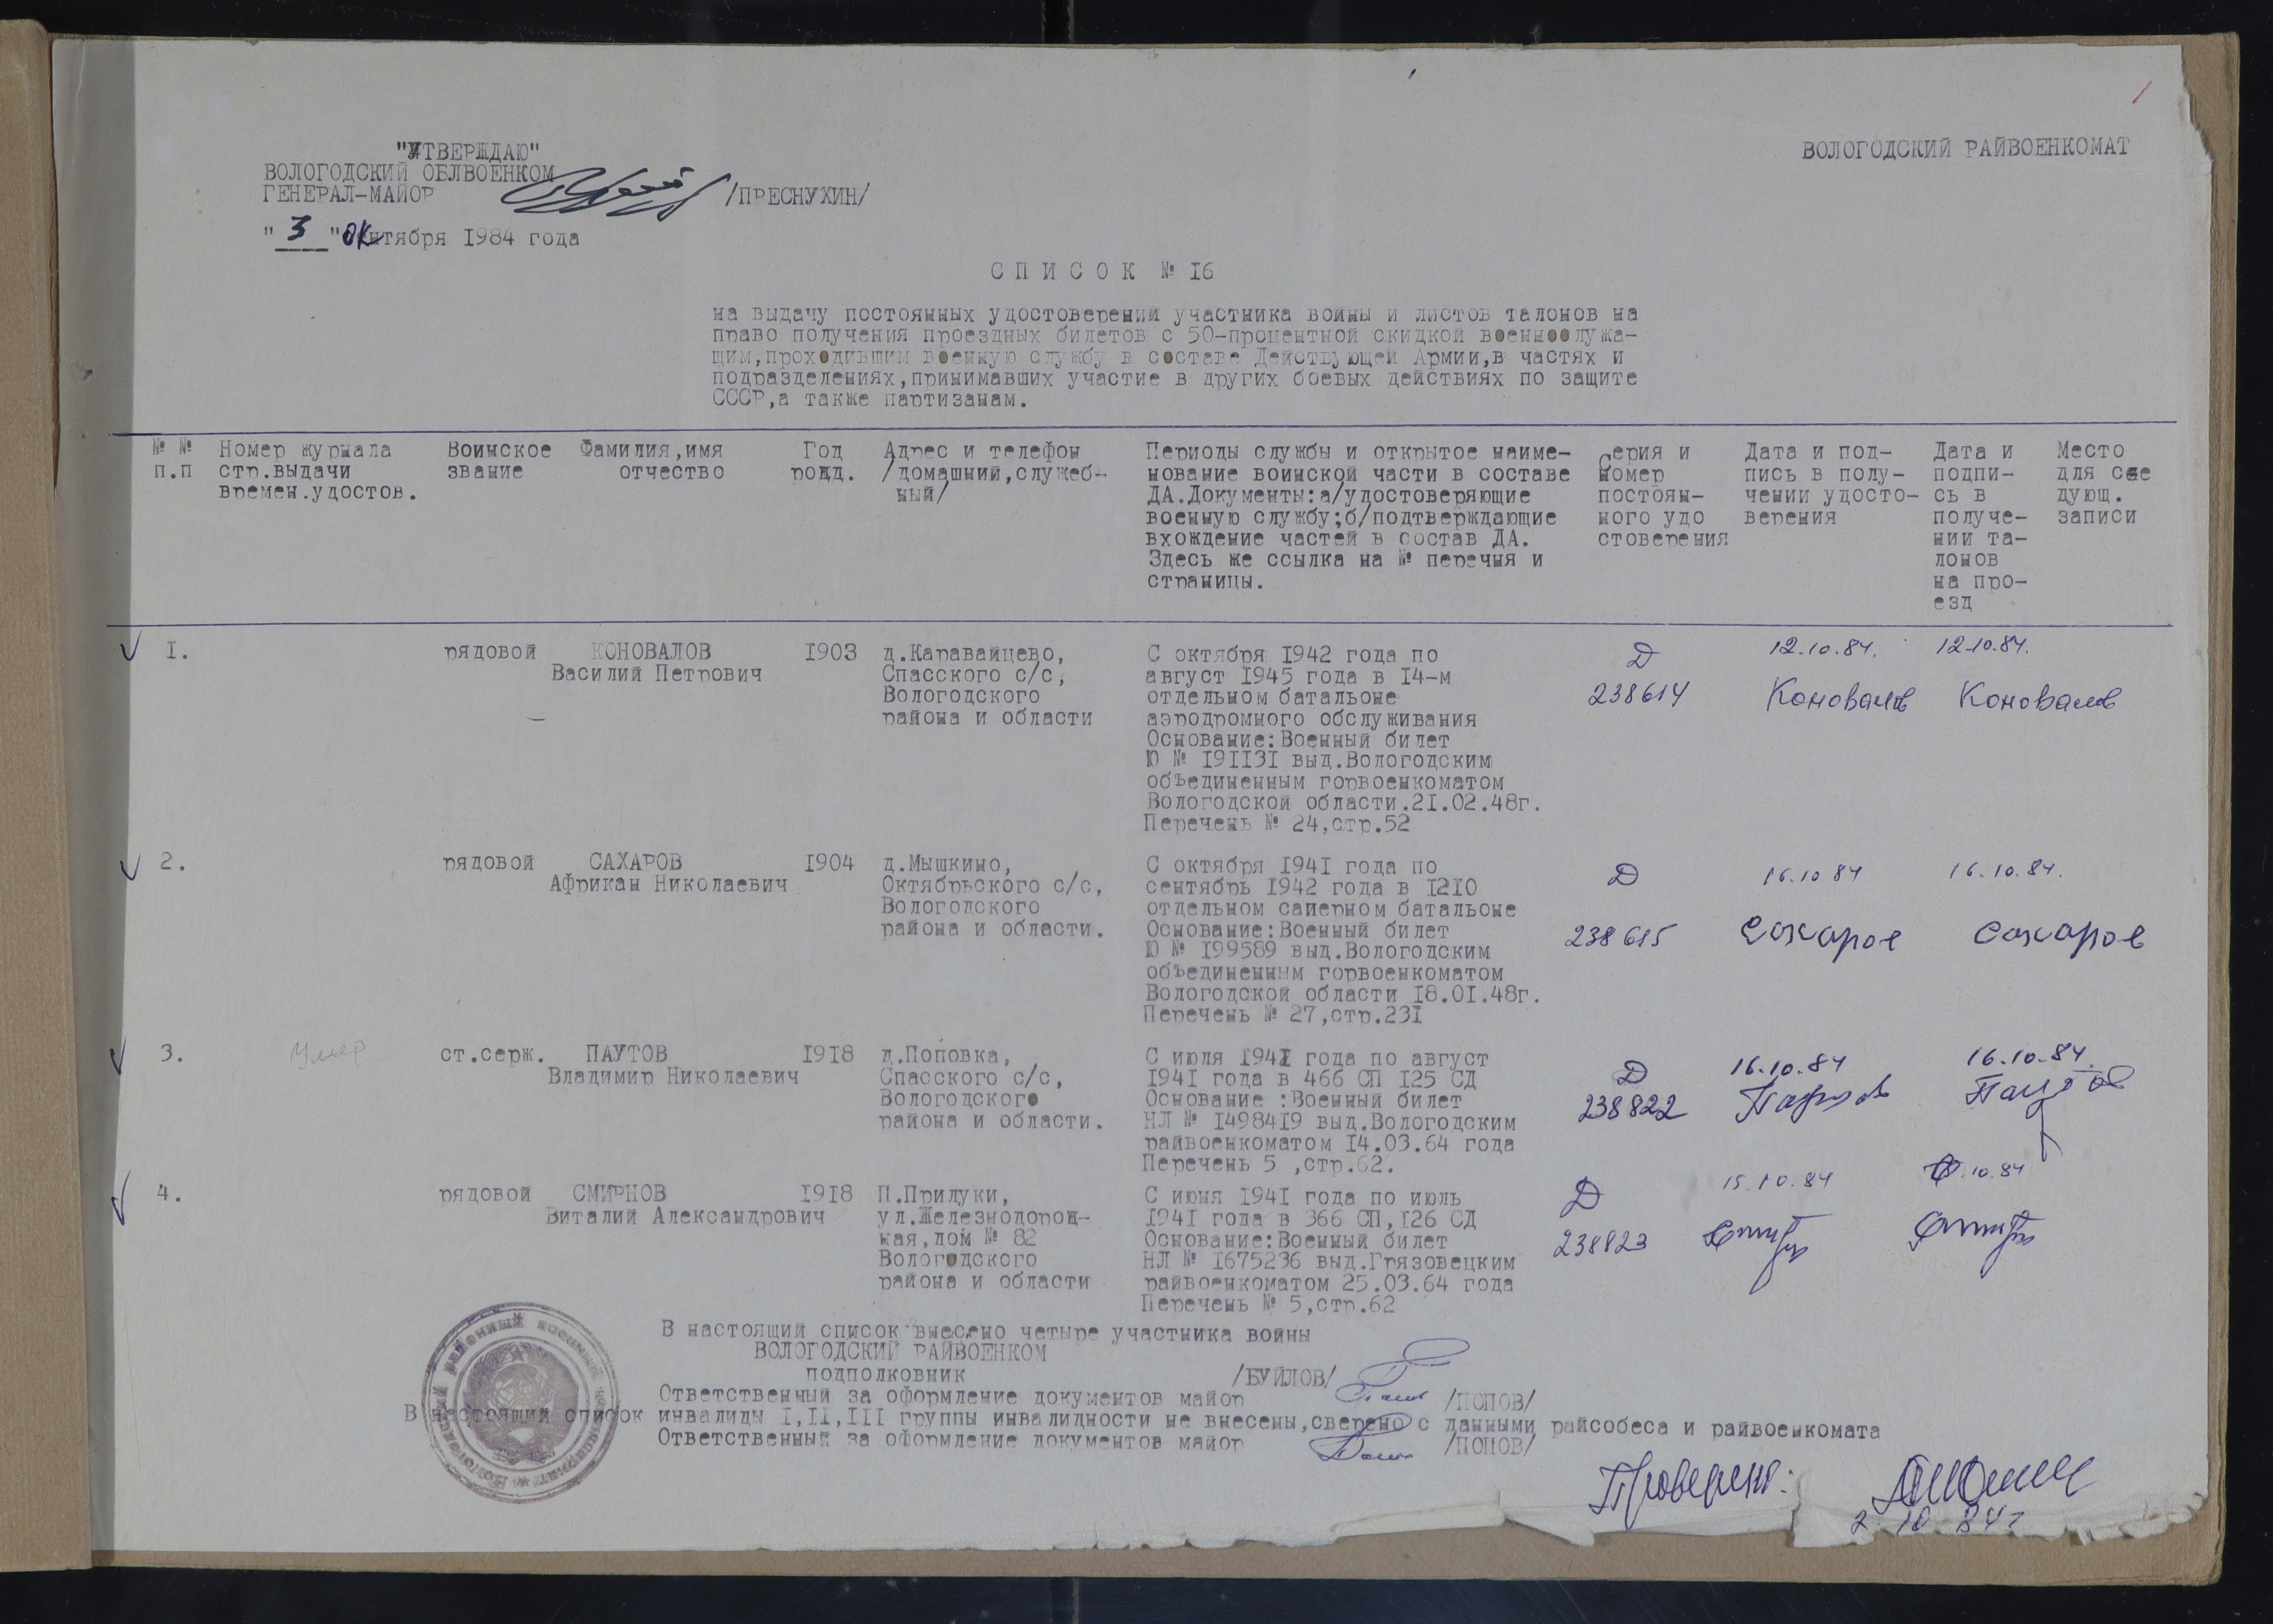 1
"УТВЕРЖДАЮ"
ВОЛОГОДСКИЙ ОБЛВОЕНКОМ
ГЕНЕРАЛ-МАЙОР /ПРЕСНУХИН/
"3" октября 1984 года
ВОЛОГОДСКИЙ РАЙВОЕНКОМАТ
СПИСОК № 16
на выдачу постоянных удостоверений участника войны и листов талонов на
право получения проездных билетов с 50-процентной скидкой военнослужа-
щим,проходившим военную службу в составе Действующей Армии,в частях и
подразделениях,принимавших участие в других боевых действиях по защите
СССР,а также партизанам.
№ №
п.п
Номер журнала
стр.выдачи
времен.удостов.
Воинское
звание
Фамилия,имя
отчество
Год
рожд.
Адрес и телефон
/домашний,служеб-
ный/
Периоды службы и открытое наиме-
нование воинской части в составе
ДА.Документы:а/удостоверяющие
военную службу;б/подтверждающие
вхождение частей в состав ДА.
Здесь же ссылка на № перечня и
страницы.
Серия и
номер
постоян-
ного удо
стоверения
Дата и под-
пись в полу-
чении удосто-
верения
Дата и
подпи-
сь в
получе-
нии та-
лонов
на про-
езд
Место
для сле
дующ.
записи
1.
рядовой
КОНОВАЛОВ
Василий Петрович
1903
д.Каравайцево,
Спасского с/с,
Вологодского
района и области
С октября 1942 года по
август 1945 года в 14-м
отдельном батальоне
аэродромного обслуживания
Основание:Военный билет
Ю № 191131 выд.Вологодским
объединенным горвоенкоматом
Вологодской области.21.02.48г.
Перечень № 24,стр.52
Д
238614
12.10.84.
Коновалов
12.10.84.
Коновалов
2.
рядовой
САХАРОВ
Африкан Николаевич
1904
д.Мышкино,
Октябрьского с/с,
Вологодского
района и области.
С октября 1941 года по
сентябрь 1942 года в 1210
отдельном саперном батальоне
Основание:Военный билет
Ю № 199589 выд.Вологодским
объединенным горвоенкоматом
Вологодской области 18.01.48г.
Перечень № 27,стр.231
Д
238615
16.10.84
Сахаров
16.10.84.
Сахаров
3.
Умер
ст.серж.
ПАУТОВ
Владимир Николаевич
1918
д.Поповка,
Спасского с/с,
Вологодского
района и области.
С июля 1941 года по август
1941 года в 466 СП 125 СД
Основание :Военный билет
НЛ № 1498419 выд.Вологодским
райвоенкоматом 14.03.64 года
Перечень 5 ,стр.62.
Д
238822
16.10.84
Паутов
16.10.84.
Паутов
4.
рядовой
СМИРНОВ
Виталий Александрович
1918
П.Прилуки,
ул.Железнодорож-
ная,дом № 82
Вологодского
района и области
С июня 1941 года по июль
1941 года в 366 СП,126 СД
Основание:Военный билет
НЛ № 1675236 выд.Грязовецким
райвоенкоматом 25.03.64 года
Перечень № 5,стр.62
Д
238823
15.10.84
10.84
В настоящий список внесено четыре участника войны
ВОЛОГОДСКИЙ РАЙВОЕНКОМ
подполковник /БУЙЛОВ/
Ответственный за оформление документов майор /ПОПОВ/
В настоящий список инвалиды I,II,III группы инвалидности не внесены,сверено с данными райсобеса и райвоенкомата
Ответственный за оформление документов майор /ПОПОВ/
Проверил:
2.10.84г